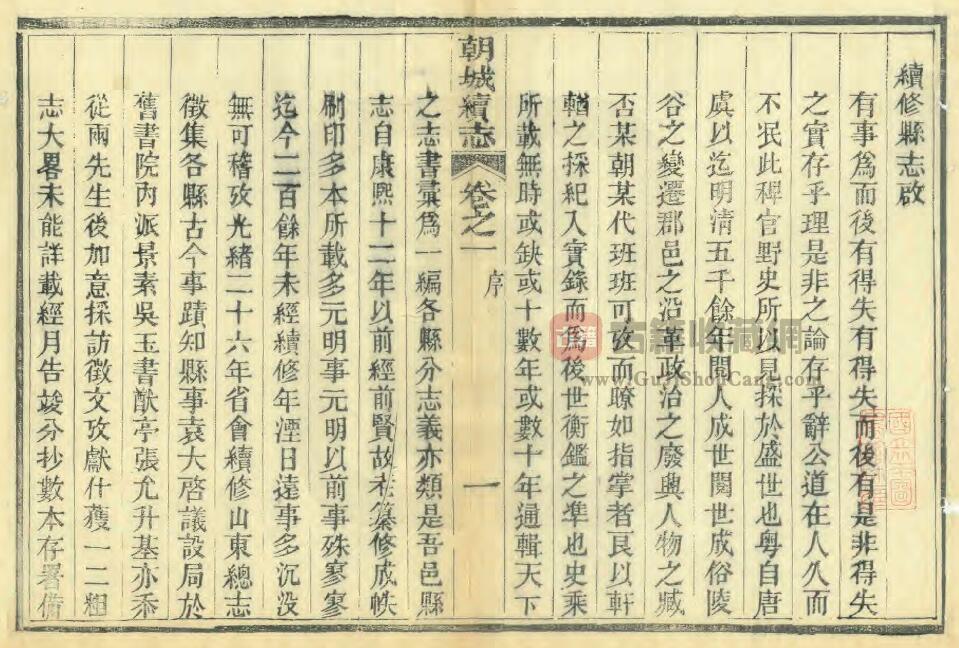 續修縣志啟
有事爲而後有得失有得失而後有是非得失
之實存乎理是非之論存乎辭公道在人久而
不泯此稗官野史所以見採於盛世也粤自唐
虞以迄明清五千餘年閱人成世閱世成俗陵
谷之變遷郡邑之沿革政治之廢興人物之臧
否某朝某代班班可攷而瞭如指掌者良以軒
輶之採紀入實錄而爲後世衡鑑之凖也史乘
所載無時或缺或十數年或數十年通輯天下
朝城續志
卷之一
序
一
之志書彙爲一編各縣分志義亦類是吾邑縣
志自康熙十二年以前經前賢故老纂修成帙
刷印多本所載多元明事元明以前事殊寥寥
迄今二百餘年未經續修年湮日遠事多沉沒
無可稽攷光緒二十六年省會續修山東總志
徵集各縣古今事蹟知縣事袁大啓議設局於
舊書院內派景素吳玉書猷亭張允升基亦忝
從兩先生後加意採訪徵文攷獻什獲一二粗
志大畧未能詳載經月告竣分抄數本存署備
古籍收藏网
www.GujiShouCang.com